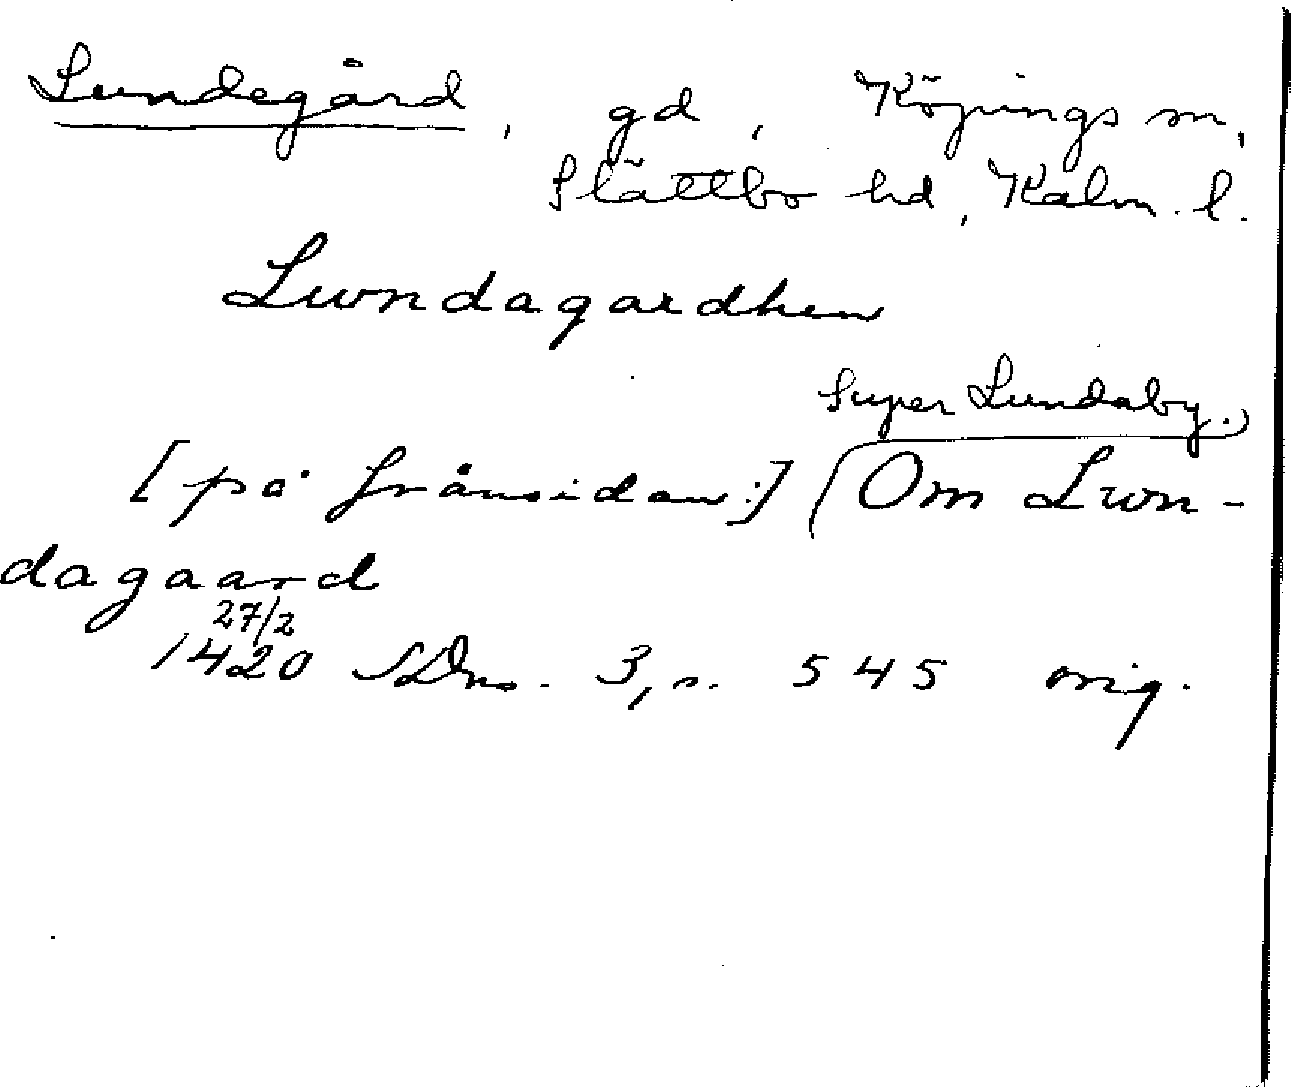 Lundegård, gd, Köpings sn,
Slättbo hd, Kalm. l.
Lwndagardhen
Super Lundaby.)
[på frånsidan:] (Om Lwn-
dagaard
27/2
1420 SDns. 3, s. 545 orig.